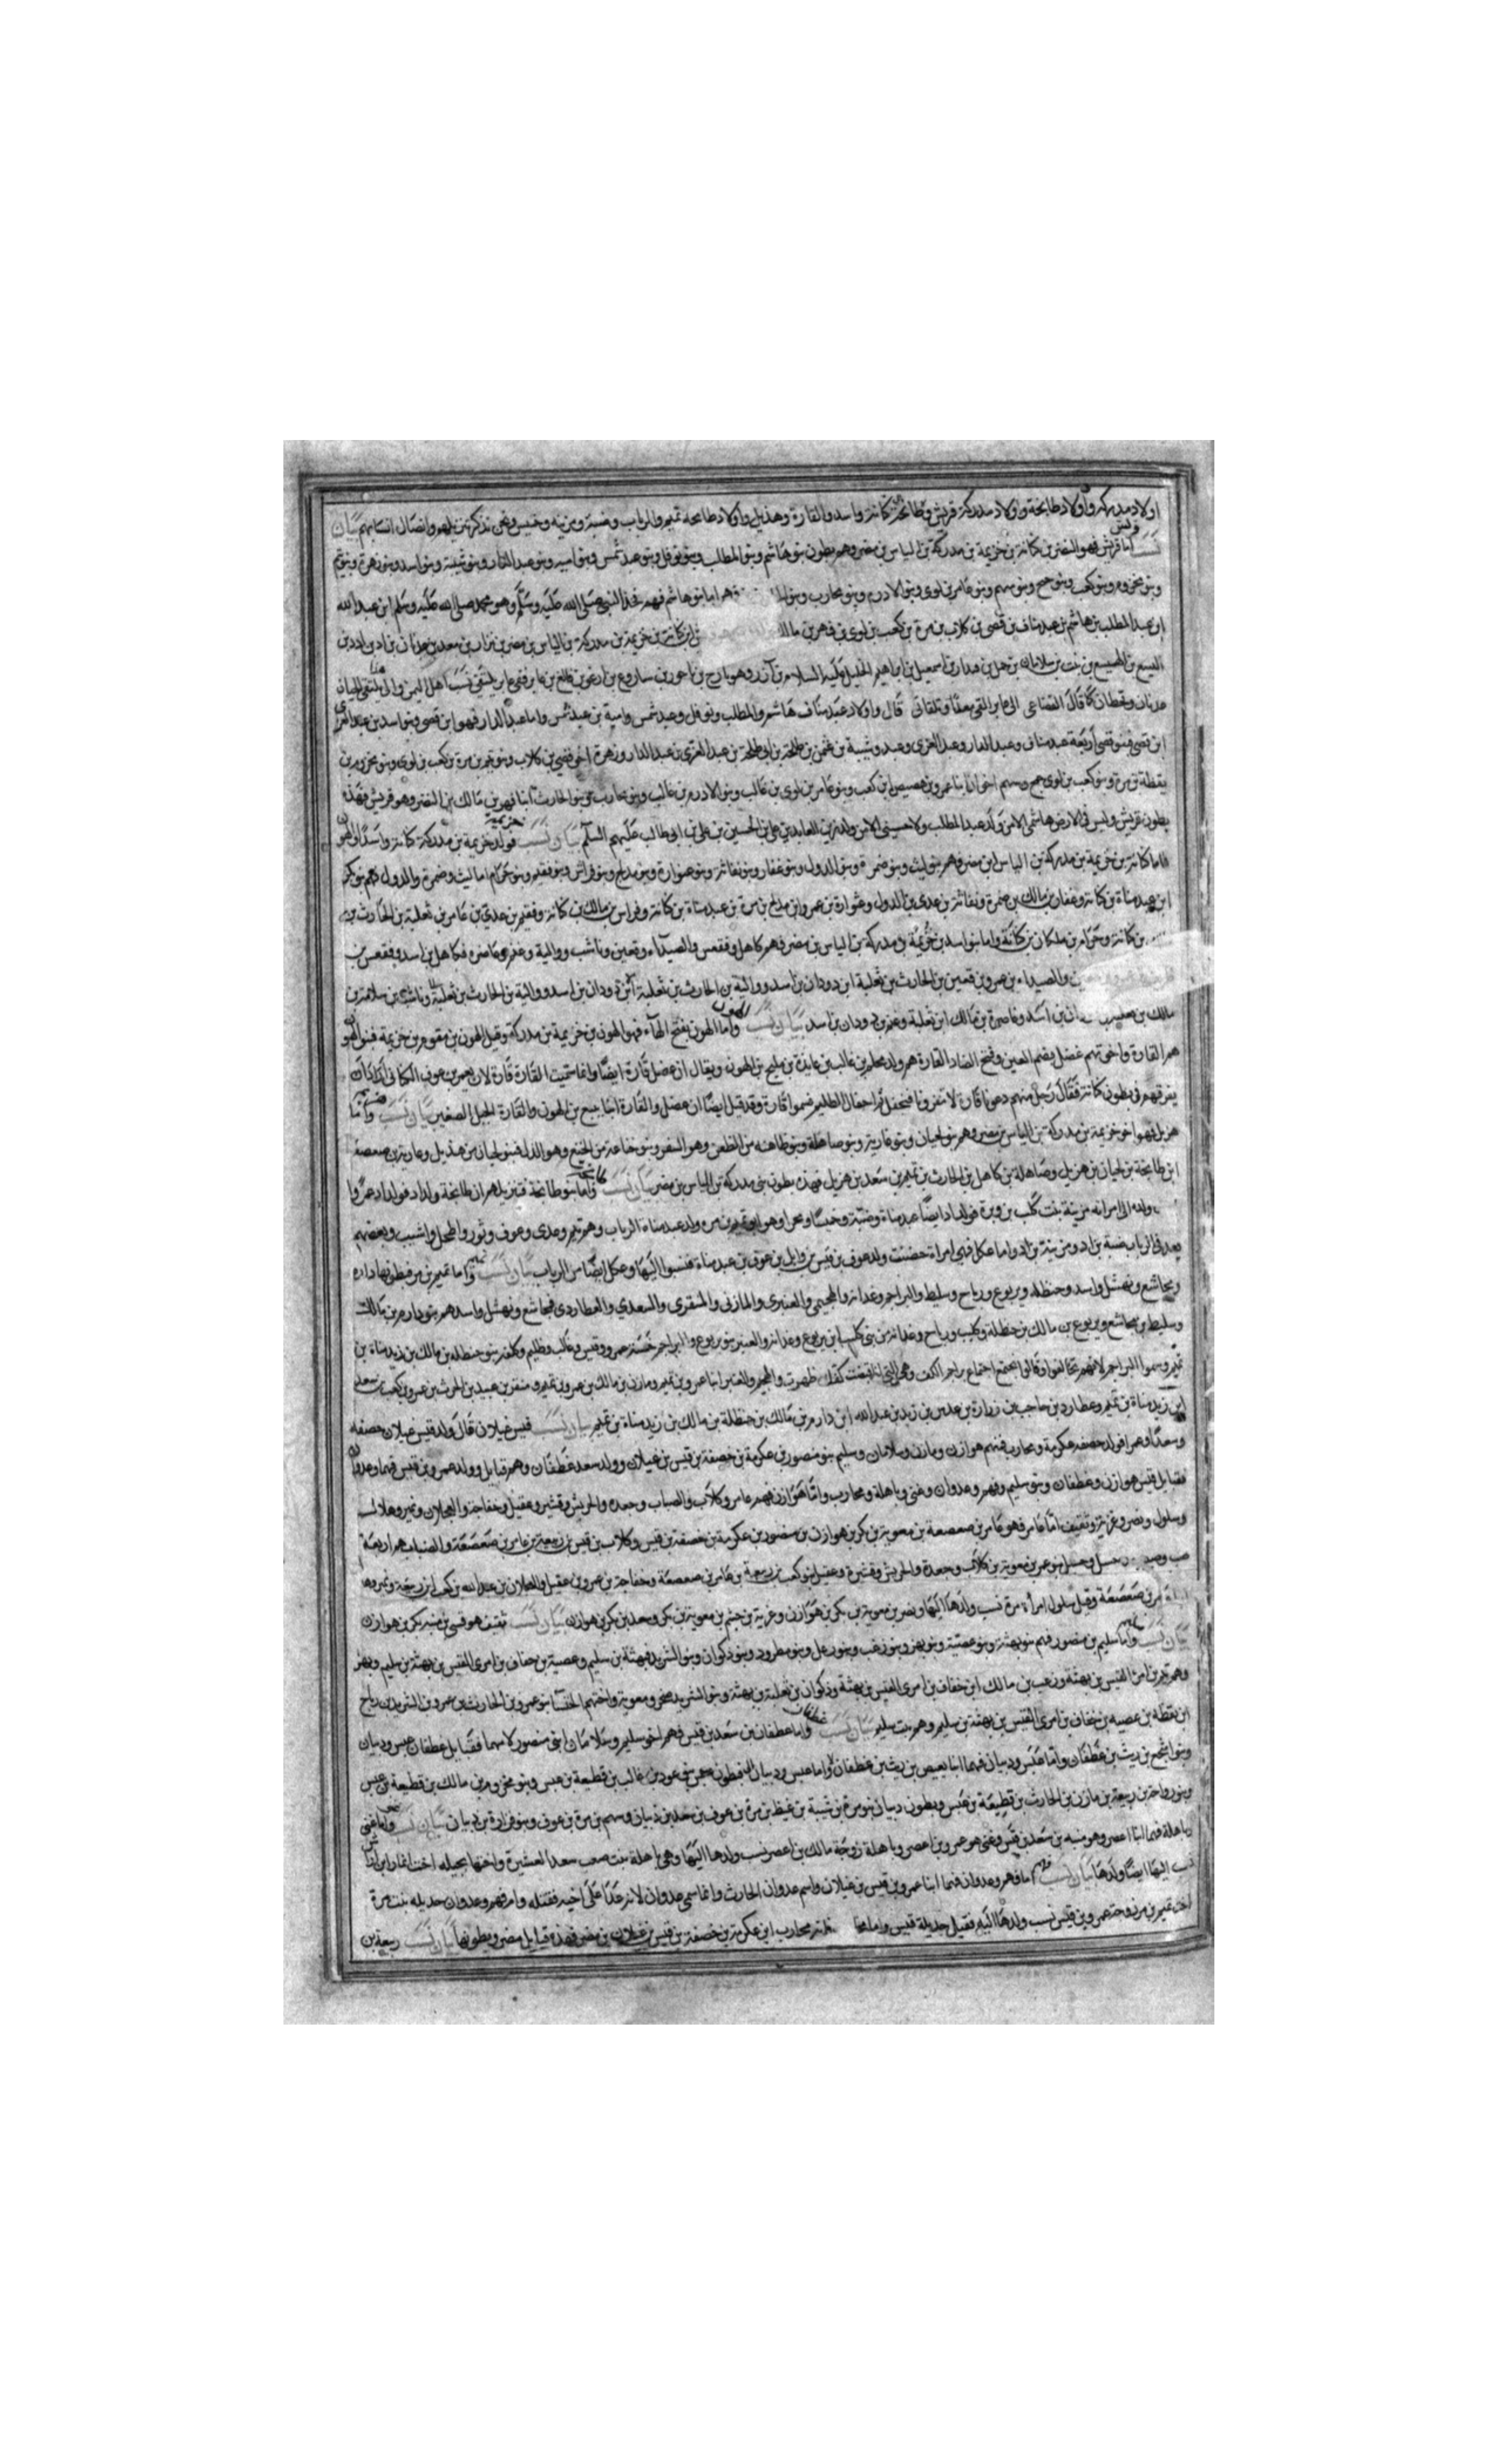 اولاد مدركه واولاد طابخة واولاد مدركة قريش وكنانة واسد والقارة وهذيل واولاد طابخه تميم والرباب وضبة ومزينه وحميس ونحن نذكر من يليهم واتصال انسابهم بيان
نسب قريش اما قريش فهو النضر بن كنانة بن خزيمة بن مدركة بن الياس بن مضر وهم بطون بنو هاشم وبنو المطلب وبنو نوفل وبنو عبد شمس وبنو اميه وبنو عبد الدار وبنو شيبة وبنو اسد وبنو زهرة وبنو تيم
وبنو مخزوم وبنو كعب وبنو جمح وبنو سهم وبنو عامر بن لوى وبنو الادرم وبنو محارب وبنو اما بنو هاشم فهم فخذ النبي صلى الله عليه وسلم وهو محمد صلى الله عليه وسلم ابن عبد الله
ابن عبد المطلب بن هاشم بن عبد مناف بن قصى بن كلاب بن مرة بن كعب بن لوى بن فهر بن مالك ابن كنانة بن خزيمة بن مدركة بن الياس بن مضر بن نزار بن معد بن عدنان بن اد بن ادد بن
اليسع بن الهميسع بن نبت بن سلامان بن حمل بن قيدار بن اسمعيل بن ابراهيم الخليل عليه السلام بن آزر وهو تارح بن ناحور بن ساروع بن ارغو بن فالغ بن عابر ففى عابر يلتقى نسب اهل اليمن والى يلتقى الحيان
عدنان وقحطان كما قال القضاعى الى عابر التقى قال واولاد عبد مناف هاشم والمطلب ونوفل وعبد شمس وامية بن عبد شمس واما عبد الدار فهو ابن قصى وبنو اسد بن عبد العزى
ابن قصى فبنو قصى اربعة عبد مناف وعبد الدار وعبد العزى وعبد وشيبة بن عثمن بن طلحة بن ابى طلحة بن عبد العزى بن عبد الدار وزهرة اخى قصى بن كلاب وبنو تيم بن مرة بن كعب بن لوى وبنو مخزوم بن
يقظة بن مرة وبنو كعب بن لوى جمح وسهم اخوان ابنا عمرو بن هصيص ابن كعب وبنو عامر بن لوى بن غالب وبنو الادرم بن غالب وبنو محارب وبنو الحارث ابنا فهر بن مالك بن النضر وهو قريش فهذه
بطون قريش وليس فى الارض هاشمى الا من ولد عبد المطلب ولا حسينى الا من ولد زين العابدين على بن الحسين بن على بن ابى طالب عليهم السلام بيان نسب خزيمة فولد خزيمة بن مدركة كنانة واسدا والهون
فاما كنانة بن خزيمة بن مدركة بن الياس بن مضر فهم بنو ليث وبنو ضمرة وبنو الدول وبنو غفار وبنو نفاثة وبنو عتوارة وبنو مدلج وبنو فراس وبنو فقيم وبنو حرام اما ليث وضمرة والدول فهم بنو بكر
ابن عبد مناة بن كنانة وغفار بن مالك بن ضمرة ونفاثة بن عدى بن الدول وعتوارة بن عمرو ابن مدلج بن مرة بن عبد مناة بن كنانة وفراس بن مالك بن كنانة وفقيم بن عدى بن عامر بن ثعلبة بن الحارث بن
بن كنانة وحرام بن ملكان بن كنانة واما بنو اسد بن خزيمة بن مدركة بن الياس بن مضر فهم كاهل وفقعس والصيداء وقعين وناشب ووالبة وعنم وغاضره فكاهل بن اسد وفقعس بن
والصيداء بن عمرو بن قعين بن الحارث بن ثعلبة ابن دودان بن اسد ووالبة بن الحارث بن ثعلبة ابن دودان بن اسد ووالبة بن الحارث بن ثعلبة
مالك بن ان بن اسد وغاضرة بن مالك ابن ثعلبة وعنم بن دودان بن اسد بيان نسب الهون واما الهون بفتح الهاء فهو الهون بن خزيمة بن مدركة وقيل الهون بن خزيمة فبنو الهون
هم القارة واخوتهم عضل بضم العين وفتح الضاد القارة هم ولد محلم بن غالب بن عايذة بن مليح بن الهون ويقال ان عضل قارة ايضا وانما سميت القارة قارة لان يعمر بن عوف اراد ان
يفرقهم فى بطون كنانة فقال رجل منهم دعونا قارة لا تنفرونا فنجفل مثل اجفال الظليم فسموا قارة وقد قيل ايضا ان عضل والقارة ابنا ييثع بن الهون والقارة الجبل الصغير بيان نسب هذيل واما
هذيل فهو اخو خزيمة بن مدركة بن الياس بن مضر وهم بنو لحيان وبنو غازية وبنو صاهلة وبنو ظاعنه من الظعن وهو السفر وبنو خناعة من الخنع وهو الذل فبنو لحيان من هذيل وغازية بن صعصعة
ابن طابخة بن لحيان بن هذيل وصاهلة بن كاهل بن الحارث بن تميم بن سعد بن هذيل فهذه بطون بنى مدركة بن الياس بن مضر بيان نسب طابخة واما بنو طابخة طابخة ولد اد فولد اد عمرا
ولده الى امرانه مزينة بنت كلب بن وبرة فولد اد ايضا عبد مناة وضبة ومرا وهو ابو تميم بن مر وولد عبد مناة الرباب وهم تيم وعدى وعوف وثور واشيب وبعضهم
يعد فى الرباب ضبة بن اد ومزينة بن اد واما عكل فهى امراة حضنت ولد عوف بن قيس بن وايل بن عوف بن عبد مناة فنسبوا اليها وعكل ايضا من الرباب بيان نسب تميم واما تميم بن مر فبطونها دارم
ومجاشع ونهشل واسد وحنظله ويربوع ورياح وسليط والبراجم وغدانة والهجيمى والعنبرى والمازنى والمنقرى والسعدى والعطاردى فمجاشع ونهشل واسد هم بنو دارم بن مالك
وسليط بن مجاشع ويربوع بن مالك بن حنظلة وكليب ورياح وغدانة من بنى ابن يربوع وغدانة والعنبر بنو يربوع والبراجم خمسة عمرو وقيس وغالب وظليم وكلفة بنو حنظله بن مالك بن زيد مناه بن
تميم وسموا البراجم لانهم تحالفوا وقالوا نجتمع اجتماع براجم الكف وهى التى اذا قبضت كفك ظهرت والهجيم والعنبر ابنا عمرو بن تميم ومازن بن مالك بن عمرو بن تميم ومنقر بن عبيد بن الحرث بن عمرو بن كعب بن سعد
ابن زيد مناة بن تميم وعطارد بن حاجب بن زرارة بن عدس بن زيد بن عبد الله ابن دارم بن مالك بن حنظلة بن مالك بن زيد مناة بن تميم بيان نسب قيس عيلان قال ولد قيس عيلان خصفه
وسعدا وعمرا فولد خصفه عكرمة ومحارب فمنهم هوازن ومازن وسلامان وسليم بنو منصور بن عكرمة بن خصفة بن قيس بن عيلان وولد سعد غطفان وهم قبايل وولد عمرو بن قيس فهما وعدوان
فقبايل قيس هوازن وغطفان وبنو سليم وفهم وعدوان وغنى وباهلة ومحارب واما هوازن فهم عامر وكلاب والضباب وجعده والحريش وقشير وعقيل وخفاجة والعجلان ونمير وهلال
وسلول ونصر وغزية وثقيف اما عامر فهو عامر بن صعصعة بن معوية بن بكر بن هوازن بن منصور بن عكرمة بن خصفة بن قيس وكلاب بن قيس بن ربيعة بن عامر بن صعصعة والضباب هم اربعة
بنو عمرو بن معوية بن كلاب وجعدة والحريش وقشيرة وعقيل بنو كعب بن ربيعة بن عامر بن صعصعة وخفاجة بن عمرو بن عقيل والعجلان بن عبد الله بن كعب بن ربيعة ونمير وهلال
بن صعصعة وقيل سلول امرأة مرة نسب ولدها اليها ونصر بن معوية بن بكر بن هوازن وغزية بن جشم بن معوية بن بكر وسعد بن بكر بن هوازن بيان نسب ثقيف هو قسى بن منبه بن بكر بن هوازن
بيان نسب سليم واما سليم بن منصور فهم بنو بهثة وبنو عصية وبنو بهز وبنو زعب وبنو رعل وبنو مطرود وبنو ذكوان وبنو الشريد فبهثة بن سليم وعصية بن خفاف بن امرى القيس بن بهثة بن سليم وبهز
وهم بن امرى القيس بن بهثة وزعب بن مالك ابن خفاف بن امرى القيس بن بهثة وذكوان بن ثعلبة بن بهثة وبنو الشريد صخر ومعوية واختهم الخنسا بنو عمرو بن الحارث بن عمرو بن الشريد بن رياح
ابن يقظه بن عصيه بن خفاف بن امرى القيس بن بهثة بن سليم وهم بيت سليم بيان نسب غطفان واما غطفان بن سعد بن قيس فهم اخو سليم وسلامان ابنى منصور لامهما فقبايل غطفان عبس وذبيان
وبنو اشجع بن ريث بن غطفان واما عبس وذبيان فهما ابنا بغيض بن ريث بن غطفان واما عبس وذبيان غالب بن قطيعة بن عبس وبنو مخزوم بن مالك بن قطيعة بن عبس
وبنو رواحة بن ربيعة بن مازن بن الحارث بن قطيعة بن عبس وبطون ذبيان بنو مرة بن نشبة بن غيظ بن مرة بن عوف بن سعد بن ذبيان وسهم بن مرة بن عوف وبنو فزارة بن ذبيان بيان نسب غنى واما غنى
وباهلة فهما ابنا اعصر وهو منبه بن سعد بن قيس وغنى هو عمرو بن اعصر وباهلة زوجة مالك بن اعصر نسب ولدها اليها وهى باهلة بنت صعب سعد العشيرة واختها بجيله
نسب اليها ايضا ولدها بيان نسب فهم اما فهم وعدوان فهما ابنا عمرو بن قيس بن عيلان واسم عدوان الحارث وانما سمى عدوان لانه عدا على اخيه فقتله وام فهم وعدوان جديله بنت مرة
اخت تميم بن مر زوجة عمرو بن قيس نسب ولدها اليه فقيل جديلة قيس واما محارب ابن عكرمة بن خصفة بن قيس بن عيلان بن مضر فهذه قبايل مضر وبطونها بيان نسب ربيعة بن